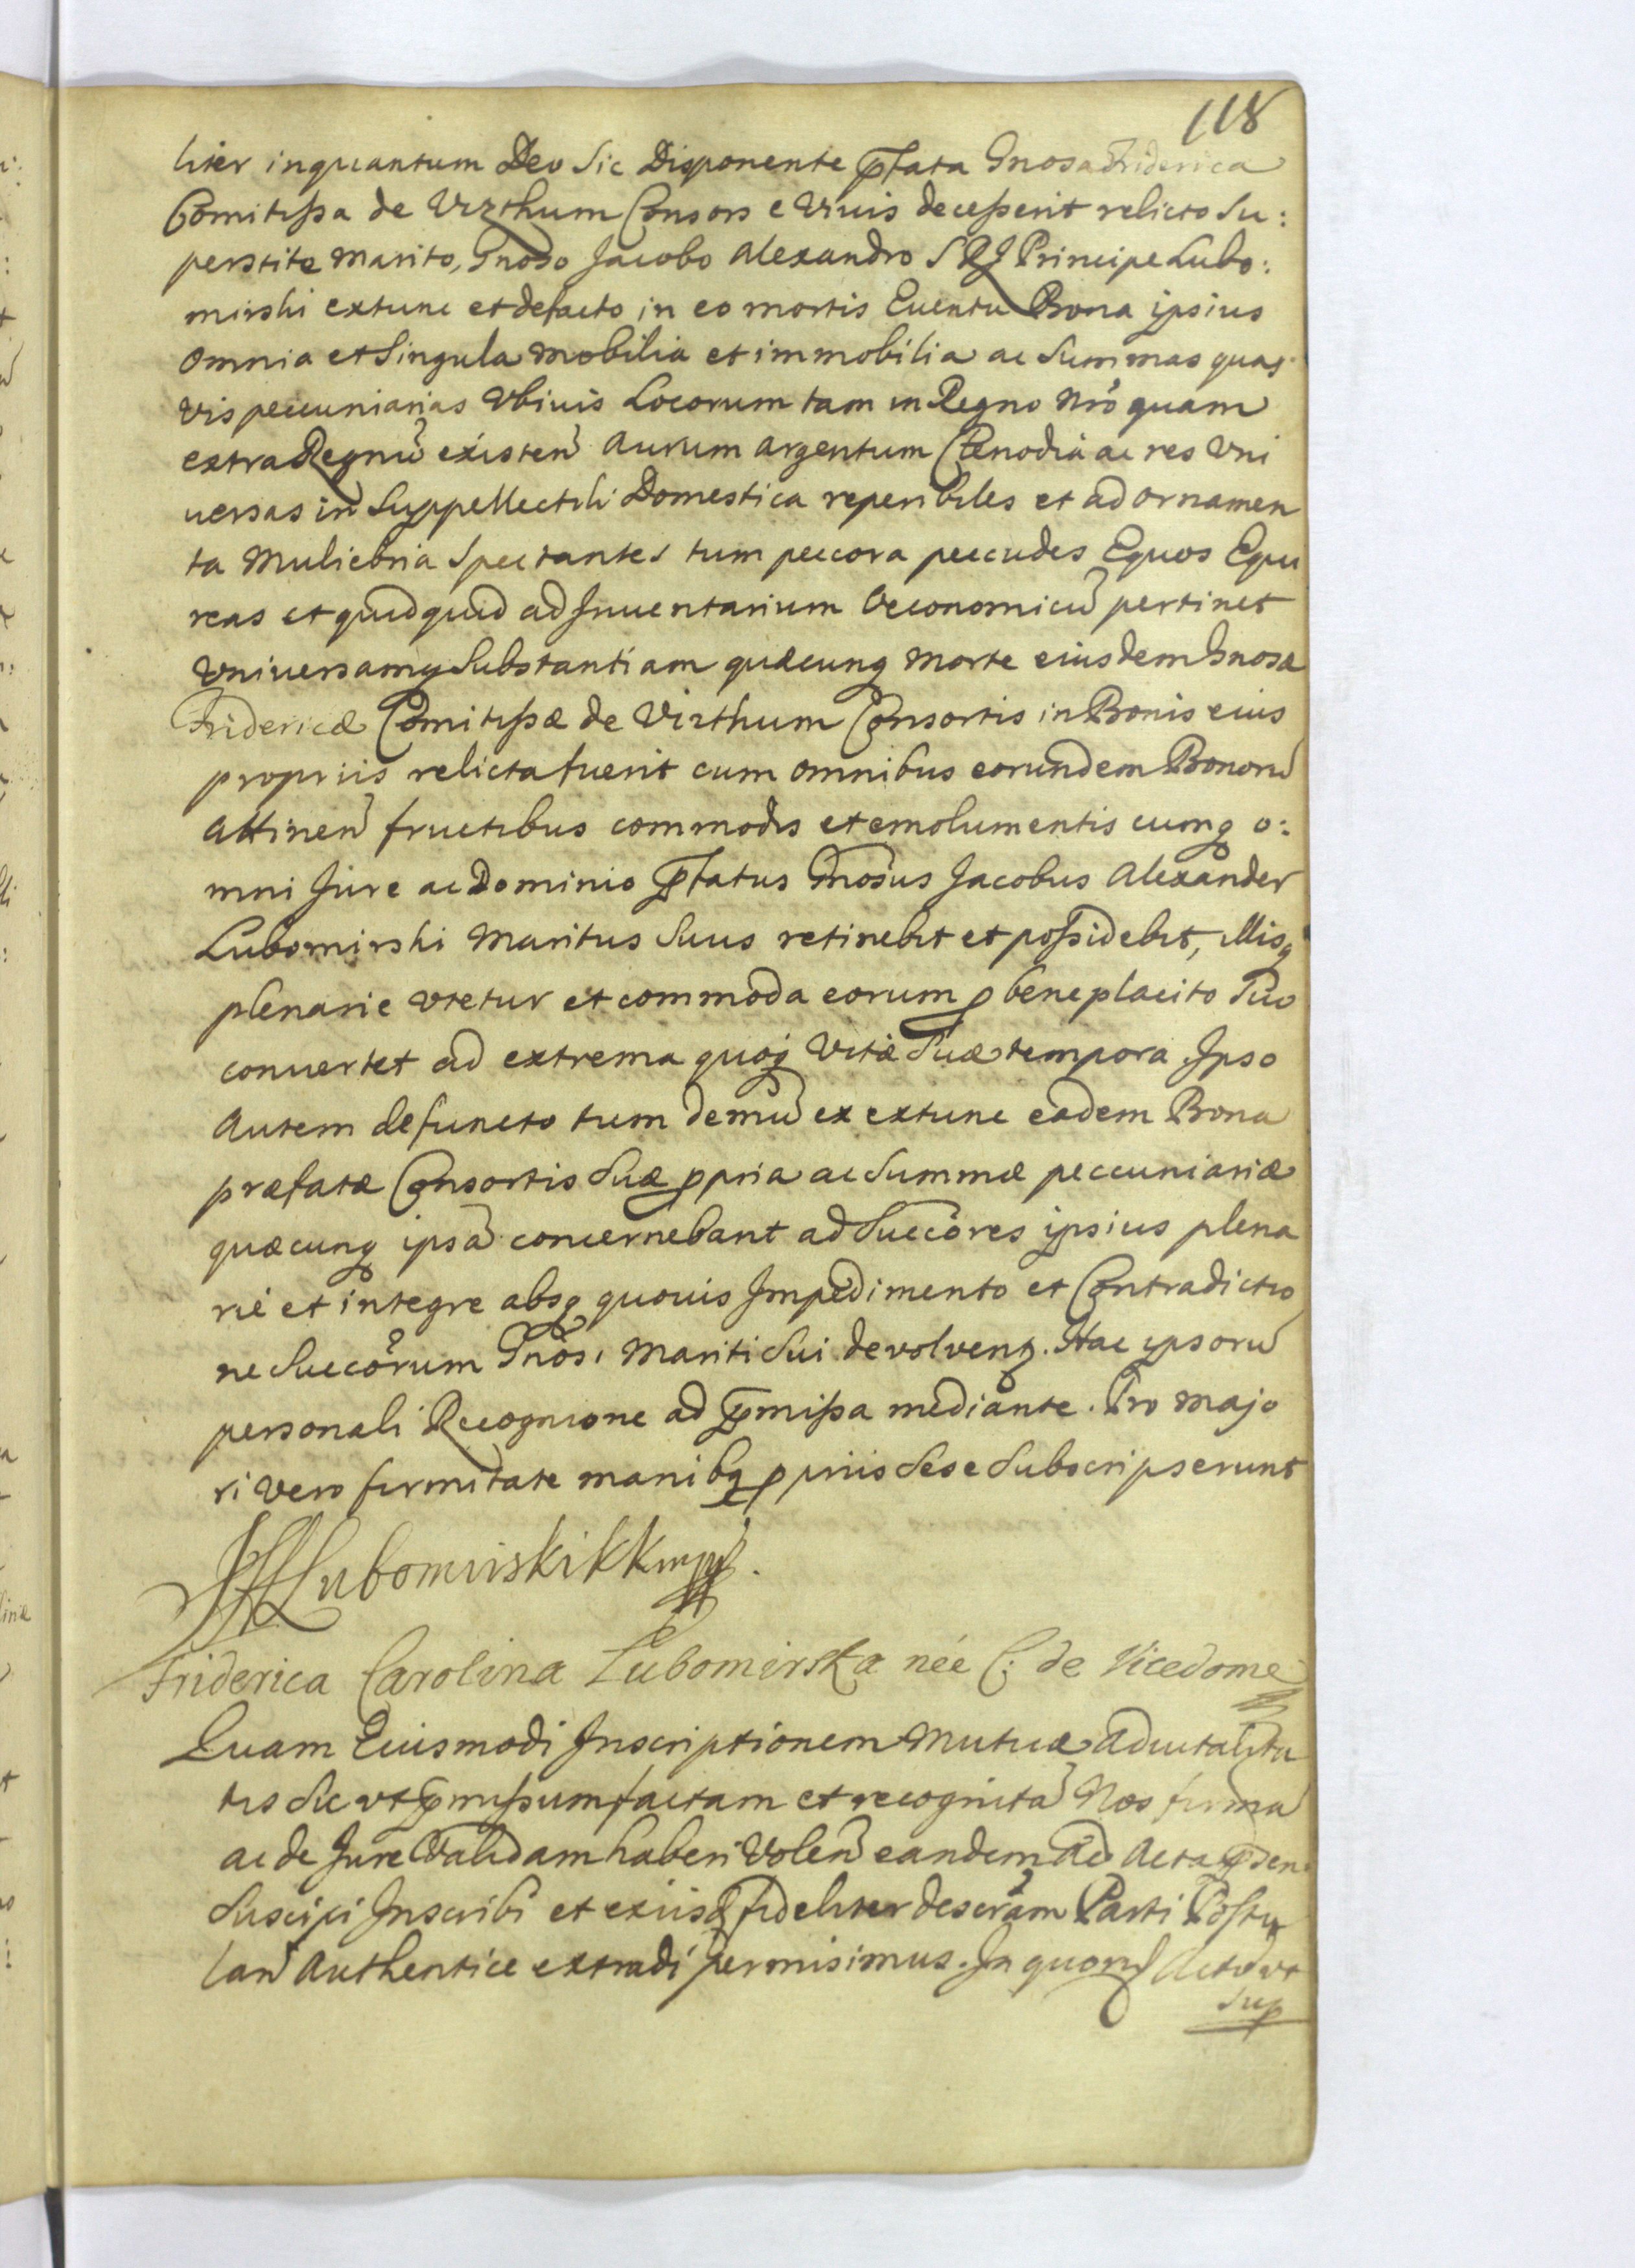 118
liter inquantum Deo Sic Disponente Ptata Gnosa Friderica
Comitissa de Vizthum Consors e Vivis decesserit relicto Su:
perstite Marito, Gnoso Jacobo Alexandro S R J Principe Lubo:
mirski extunc et defacto in eo mortis Euentu Bona ipsius
Omnia et Singula Mobilia et immobilia ac Summas quas
vis peccuniarias Vbiuis Locorum tam in Regno Nro quam
extra Regnũ existeñ Aurum Argentum Clenodia ac res Vni
uersas in Suppellectili Domestica reperibiles et ad Ornamen
ta Muliebria Spectantes tum peccora peccudes Equos Equi
reas et quidquid ad Inuentarium Oeconomicũ pertinet
Vniuersamq Substantiam quæcunq Morte eiusdem Gnosæ
Fridericæ Comitissæ de Vizthum Consortis in Bonis eius
propriis relicta fuerit cum omnibus eorundem Bonorũ
Attineñ fructibus commodis et emolumentis cumq o:
mni Jure ac Dominio Ptatus Gnosus Jacobus Alexander
Lubomirski Maritus Suus retinebit et possidebit, illisq
plenarie Vtetur et commoda eorum p beneplacito Suo
conuertet ad extrema quoq Vitæ Suæ tempora Ipso
Autem defuncto tum demũ ex extunc eadem Bona
præfatæ Consortis Suæ ppria ac Summæ peccuniariæ
quæcunq ipsã concernebant ad Succores ipsius plena
rie et integre absq quouis Impedimento et Contradictio
ne Succorum Gnosi Mariti Sui devolventur. Hac ipsorũ
personali Recognione ad pmissa mediante. Pro Majo
ri vero firmitate manibq ppriis Sese Subscripserunt
JALubomirski KK mpp.
Friderica Carolina Lubomirska née C: de Vicedome
Quam Eiusmodi Inscriptionem Mutuæ Aduitalita
tis Sic vt pmissum factam et recognitã Nos firmã
ac de Jure Validam haberi Voleñ eandem Ad Acta pden:
Suscipi Inscribi et exiisd fideliter descram Parti Postu
lañ Authentice extradi permisimus. In quorũ Acto vt
Sup